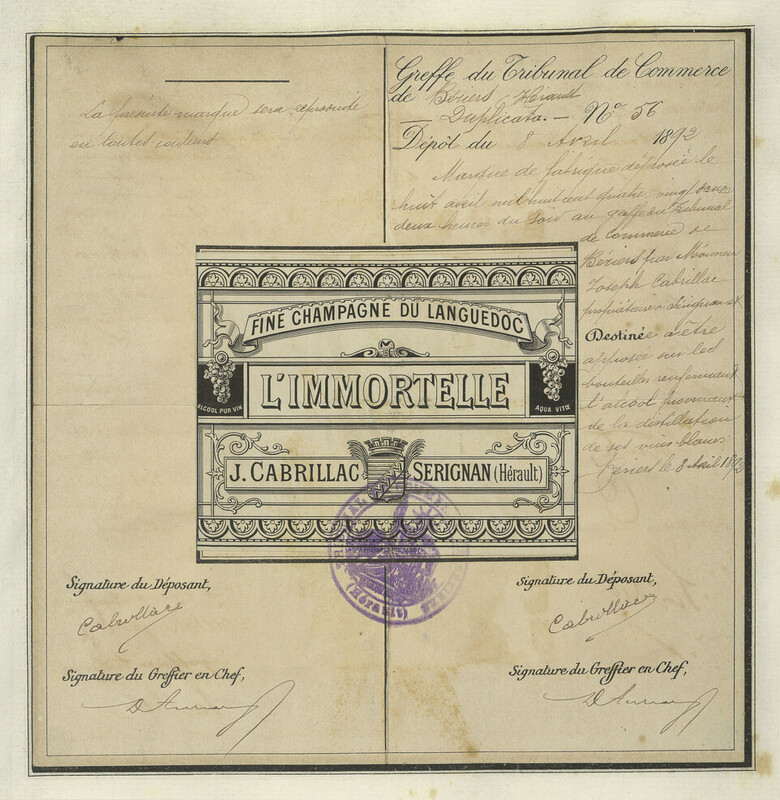 La présente marque sera reproduite
en toutes couleurs
Greffe du Tribunal de Commerce
de Béziers Hérault
— Duplicata. — No 56
Dépôt du 8 Avril 1892
Marque de fabrique déposée le
huit avril mil huit cent quatre vingt douze
deux heures du soir au greffe du Tribunal
de Commerce de
Béziers par Monsieur
Joseph Cabrillac
propriétaire à Sérignan
Destinée a être
apposée sur les
bouteilles renfermant
l'alcool provenant
de la distillation
de ses vins blancs
Béziers le 8 Avril 1892
FINE CHAMPAGNE DU LANGUEDOC
L'IMMORTELLE
ALCOOL PUR VIN
AQUA VITÆ
J. CABRILLAC SERIGNAN (Hérault)
(Hérault)
Signature du Déposant,
Cabrillac
Signature du Greffier en Chef,
Signature du Déposant,
Cabrillac
Signature du Greffier en Chef,